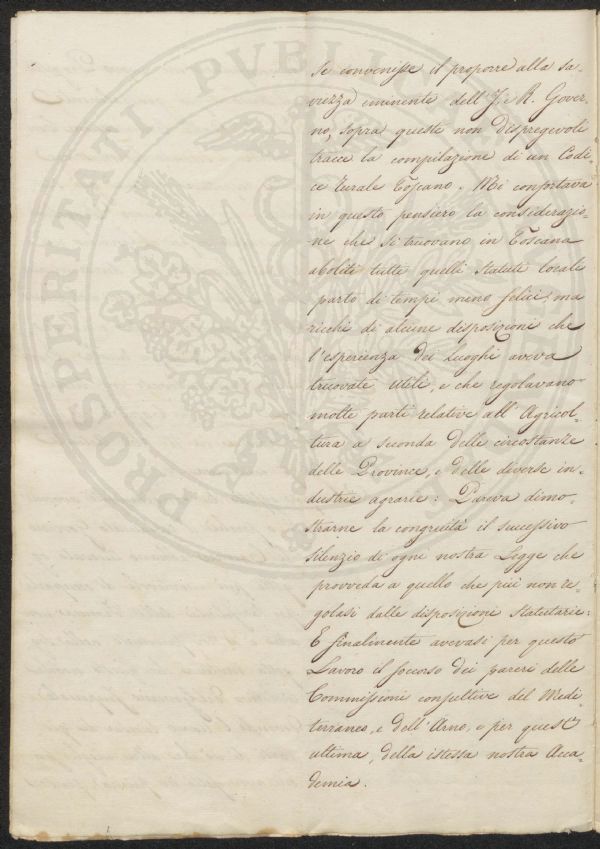 PROSPERITATI PVBLICAE
Se convenisse il proporre alla sa-
viezza eminente dell'J. e R. Gover-
no, sopra queste non dispregevoli
tracce la compilazione di un Codi-
ce rurale Toscano. Mi confortava
in questo pensiero la considerazio-
ne che si truovano in Toscana
aboliti tutti quelli statuti locali
parto di tempi meno felici, ma
ricchi di alcune disposizioni che
l'esperienza dei Luoghi aveva
truovate utili, e che regolavano
molte parti relative all'Agricol-
tura a seconda delle circostanze
delle Province, e delle diverse in-
dustrie agrarie: Pareva dimo-
strarne la congruità il successivo
silenzio di ogni nostra Legge che
provveda a quello che più non re-
golasi dalle disposizioni Statutarie:
E finalmente avevasi per questo
Lavoro il soccorso dei pareri delle
Commissioni consultive del Medi-
terraneo, e dell'Arno, e per quest'
ultima, della istessa nostra Acca-
demia.